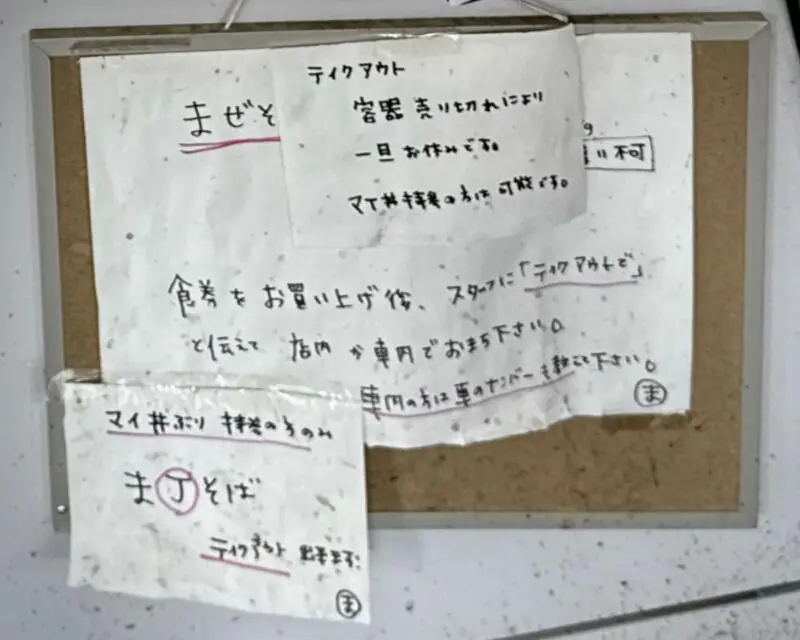 テイクアウト
容器売り切れにより
一旦お休みです。
マイ丼持参の方は可能です。
まぜそ
い不可
食券をお買い上げ後、スタッフに「テイクアウトで」
と伝えて店内か車内でおまち下さい。
車内の方は車のナンバーも教えて下さい。
ま
マイ丼ぶり持参の方のみ
ま丁そば
テイクアウト出来ます。
ま